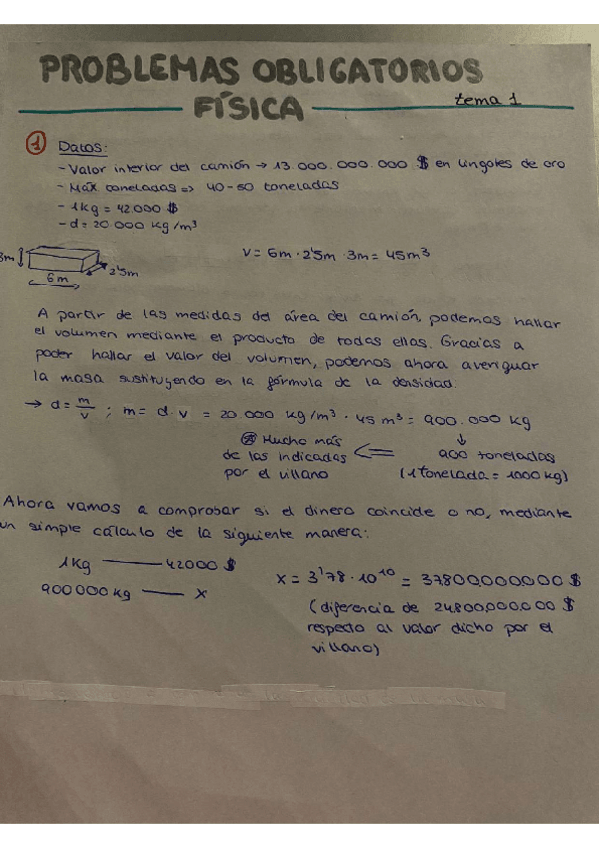 PROBLEMAS OBLIGATORIOS
FÍSICA
tema 1
1 Datos:
- Valor interior del camión → 13.000.000.000 $ en lingotes de oro
- Máx toneladas => 40-50 toneladas
- 1kg = 42000 $
- d = 20 000 kg/m³
3m
6m
2'5m
V = 6m · 2'5m · 3m = 45m³
A partir de las medidas del área del camión, podemos hallar
el volumen mediante el producto de todas ellas. Gracias a
poder hallar el valor del volumen, podemos ahora averiguar
la masa sustituyendo en la fórmula de la densidad.
→ d = m/v ; m = d · v = 20 000 kg/m³ · 45 m³ = 900.000 kg
↓
900 toneladas
(1 tonelada = 1000 kg)
⇐
Mucho más
de las indicadas
por el villano
Ahora vamos a comprobar si el dinero coincide o no, mediante
un simple cálculo de la siguiente manera:
1Kg —— 42000 $
900000 kg —— x
x = 3'78 · 10¹⁰ = 37.800.000.000 $
(diferencia de 24.800.000.000 $
respecto al valor dicho por el
villano)